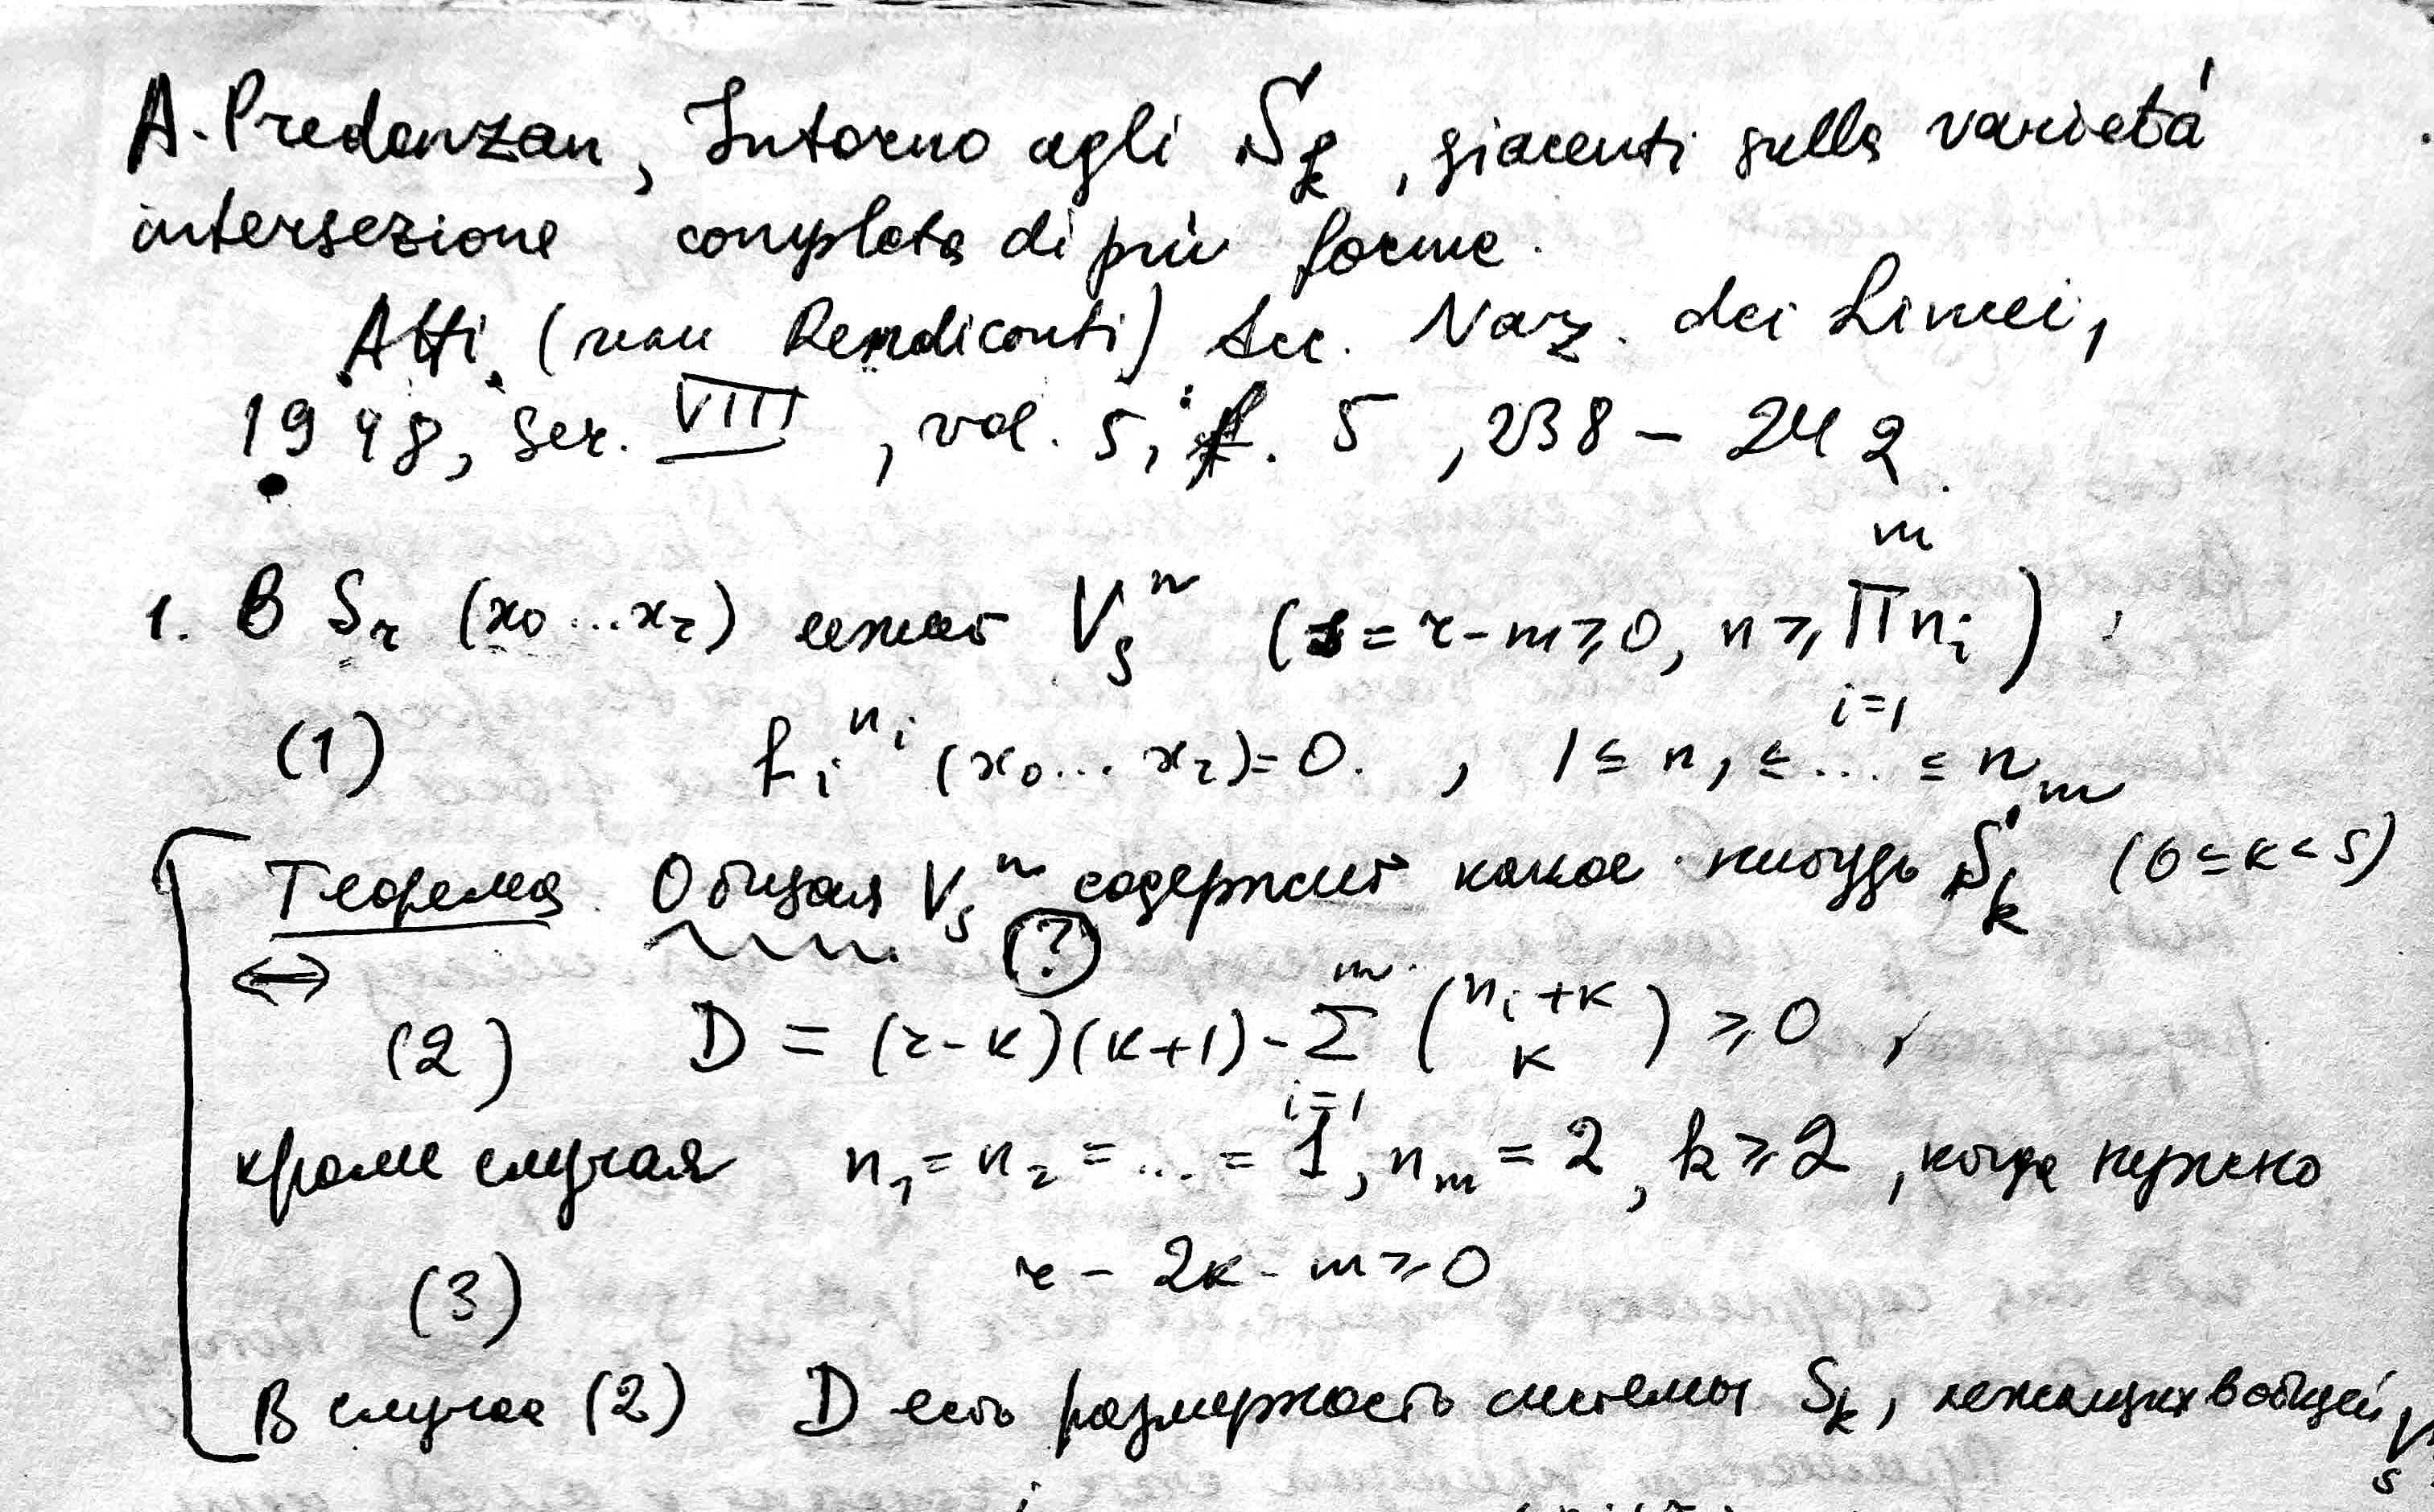 A. Predonzan, Intorno agli S_k, giacenti sulla varietá
intersezione completa di più forme.
Atti (или Rendiconti) Acc. Naz. dei Lincei,
1948, ser. VIII, vol. 5, f. 5, 238 – 242
1. В S_r (x_0 ... x_r) лежит V_s^n (s = r - m ≥ 0, n ≥ ∏_{i=1}^m n_i)
(1) f_i^{n_i} (x_0 ... x_r) = 0. , 1 ≤ n_1 ≤ ... ≤ n_m
Теорема. Общая V_s^n содержит какое-нибудь S_k (0 ≤ k < s)
⟷ (?)
(2) D = (r-k)(k+1) - ∑_{i=1}^m (n_i+k \choose k) ≥ 0,
кроме случая n_1 = n_2 = ... = 1, n_m = 2, k ≥ 2, когда нужно
(3) r - 2k - m ≥ 0
В случае (2) D есть размерность системы S_k, лежащих в общей V_s